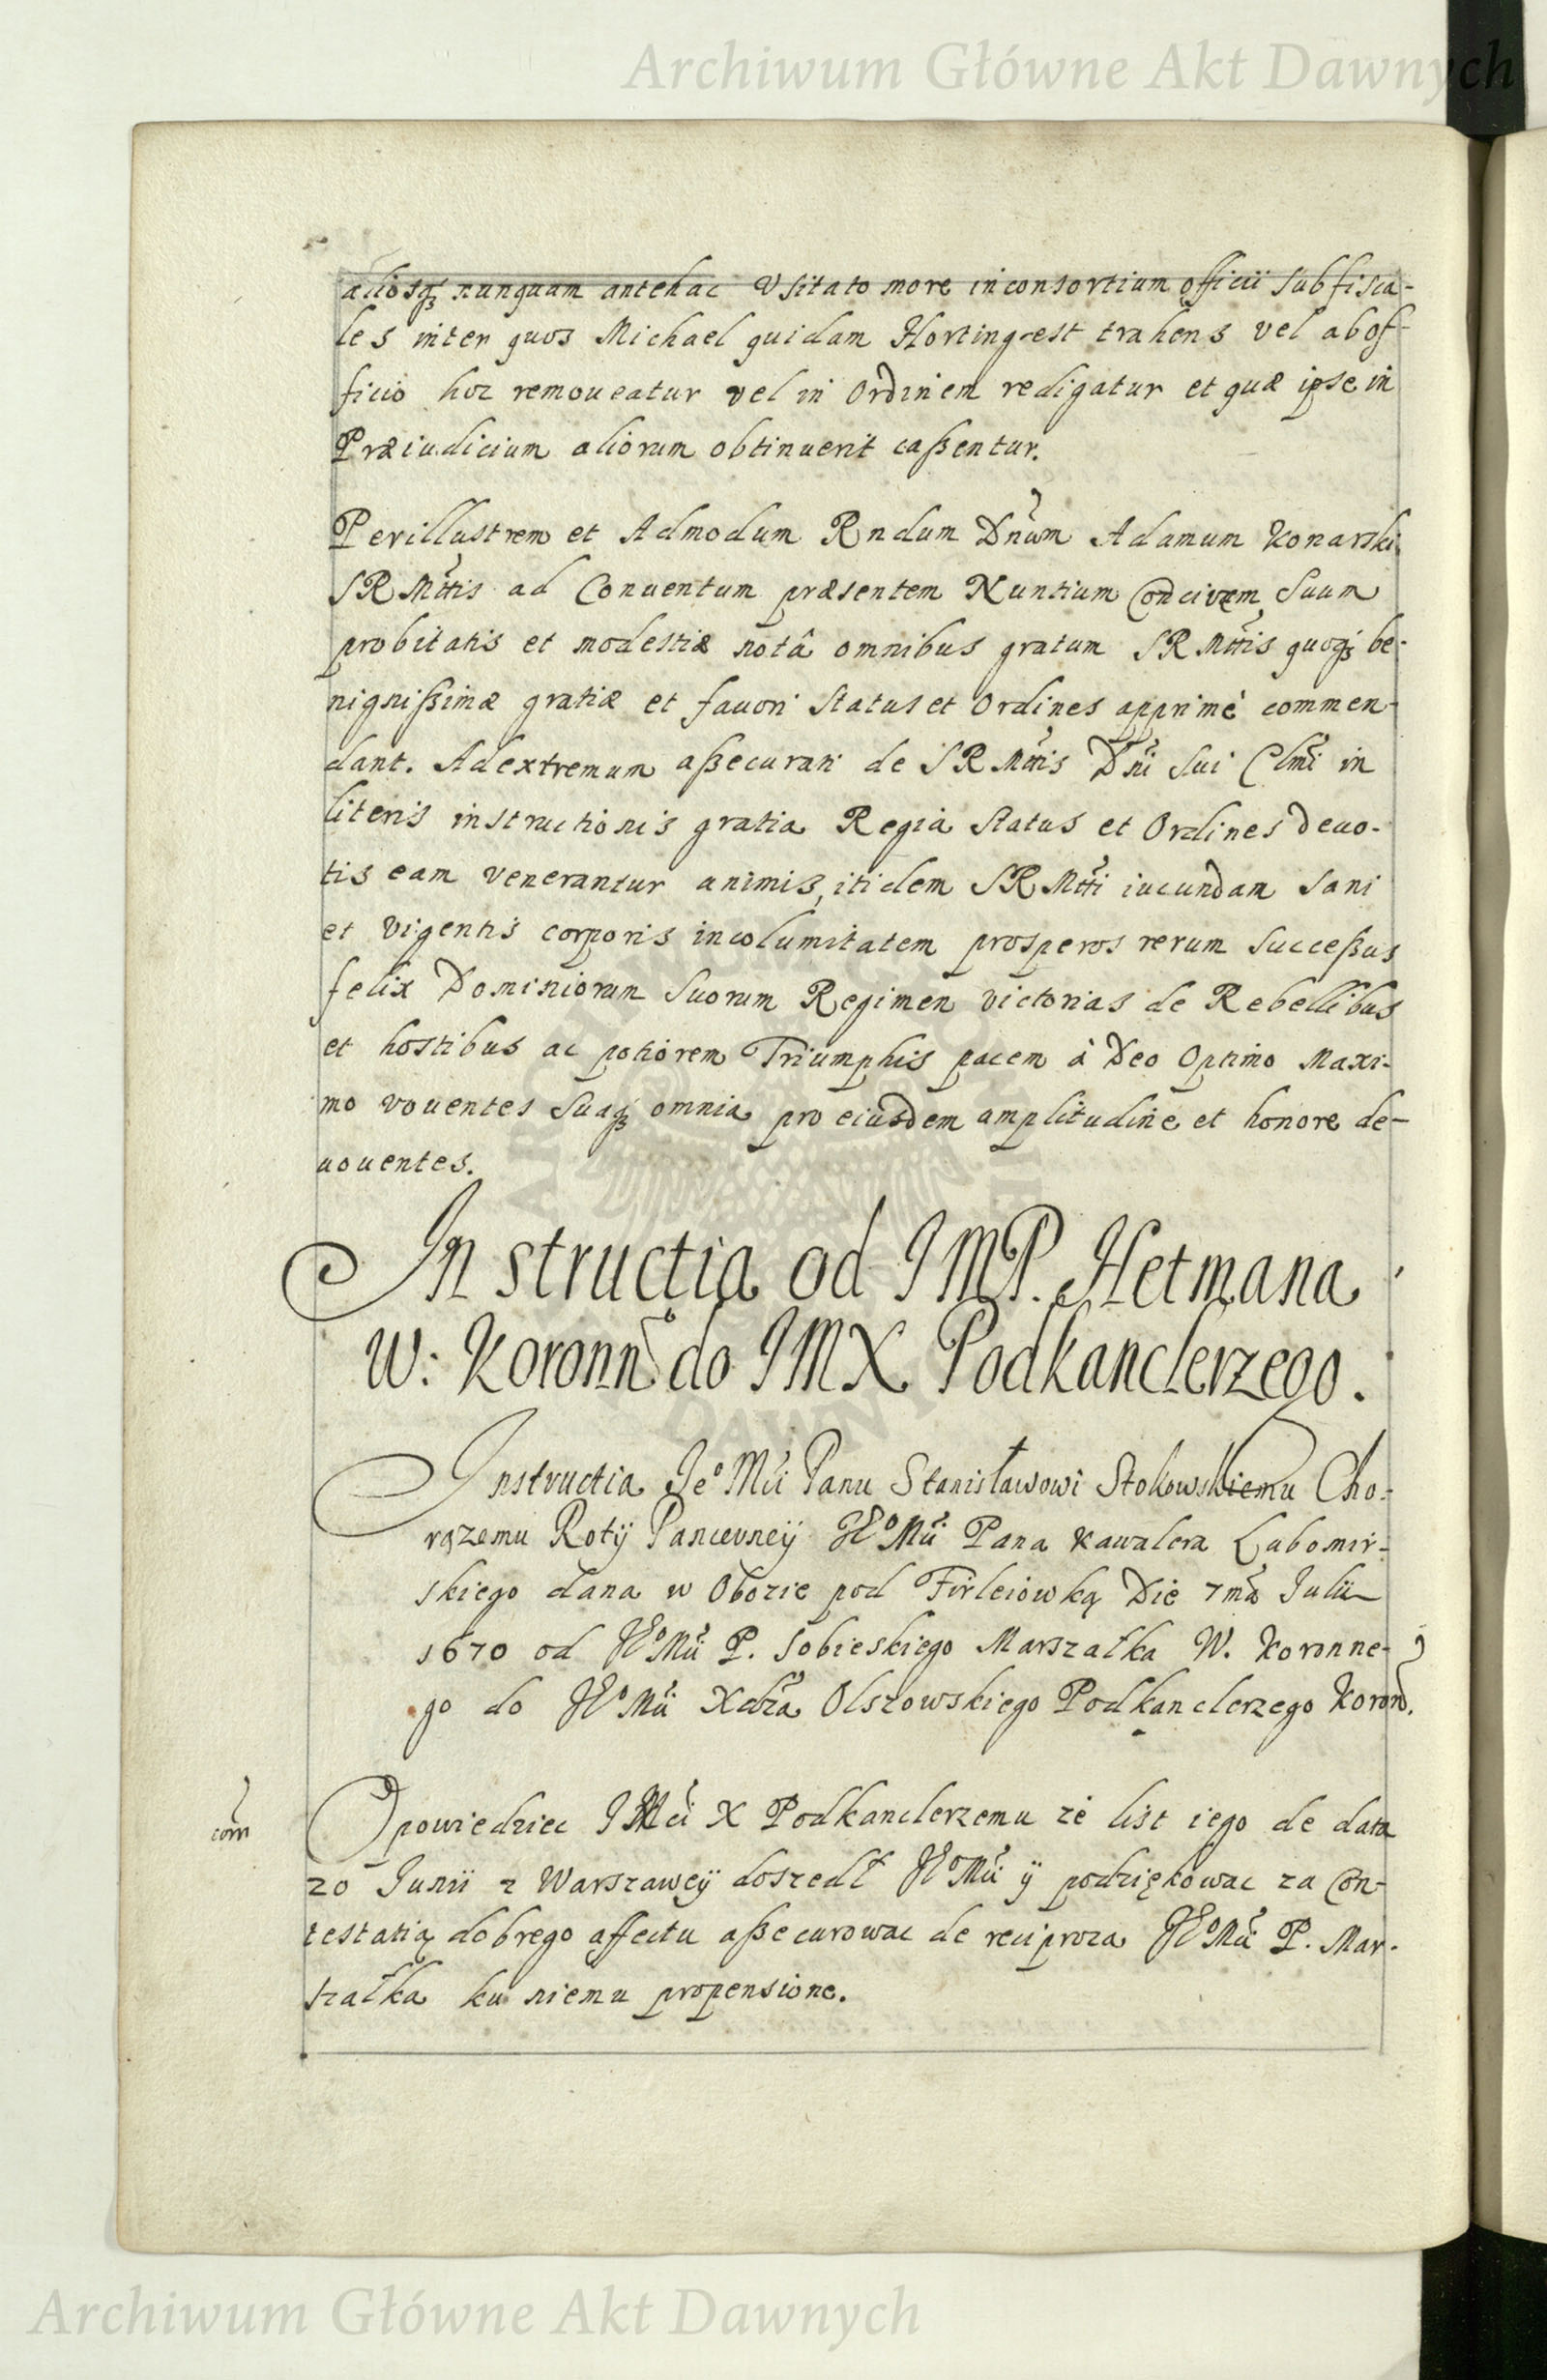 Archiwum Główne Akt Dawnych
aliosq₃ nunquam antehac Vsitato more in consortium officii Subfisca-
les inter quos Michael quidam Horting est trahens vel ab of-
ficio hoc remoueatur vel in Ordinem redigatur et quæ ipse in
Præiudicium aliorum obtinuerit caßentur.
Perillustrem et Admodum Rndum Dnum Adamum Konarski
SRMttis ad Conuentum præsentem Nuntium Concivem Suum
probitatis et modestiæ notâ omnibus gratum SRMttis quoq₃ be-
nignißimæ gratiæ et fauori Status et Ordines apprimè commen-
dant. Ad extremum aßecurati de SRMttis Dni Sui Clmi in
literis instructionis gratia Regia Status et Ordines deuo-
tis eam venerantur animis, itidem SRMtti iucundam Sani
et vigentis corporis incolumitatem prosperos rerum Succeßus
felix Dominiorum Suorum Regimen victorias de Rebellibus
et hostibus ac potiorem Triumphis pacem à Deo Optimo Maxi-
mo vouentes Suaq₃ omnia pro eiusdem amplitudine et honore de-
uouentes.
Instructia od JMP. Hetmana
W: Koronn° do JMX Podkanclerzego.
Instructia Je° Mci Panu Stanisławowi Stokowskiemu Cho-
rązemu Rotÿ Pancerneÿ JE°Mci Pana Kawalera Lubomir-
skiego dana w Obozie pod Firleiowką Die 7ma Julii
1670 od JE°Mci P. Sobieskiego Marszałka W. Koronne-
go do JE°Mci Xdza Olszowskiego Podkanclerzego Koron.
com
Opowiedziec JMci X Podkanclerzemu ze list iego de data
20 Junii z Warszaweÿ doszedł JE°Mci ÿ podziękowac za Con-
testatią dobrego affectu aßecurowac de reciproca JE°Mci P. Mar-
szałka ku niemu propensione.
Archiwum Główne Akt Dawnych